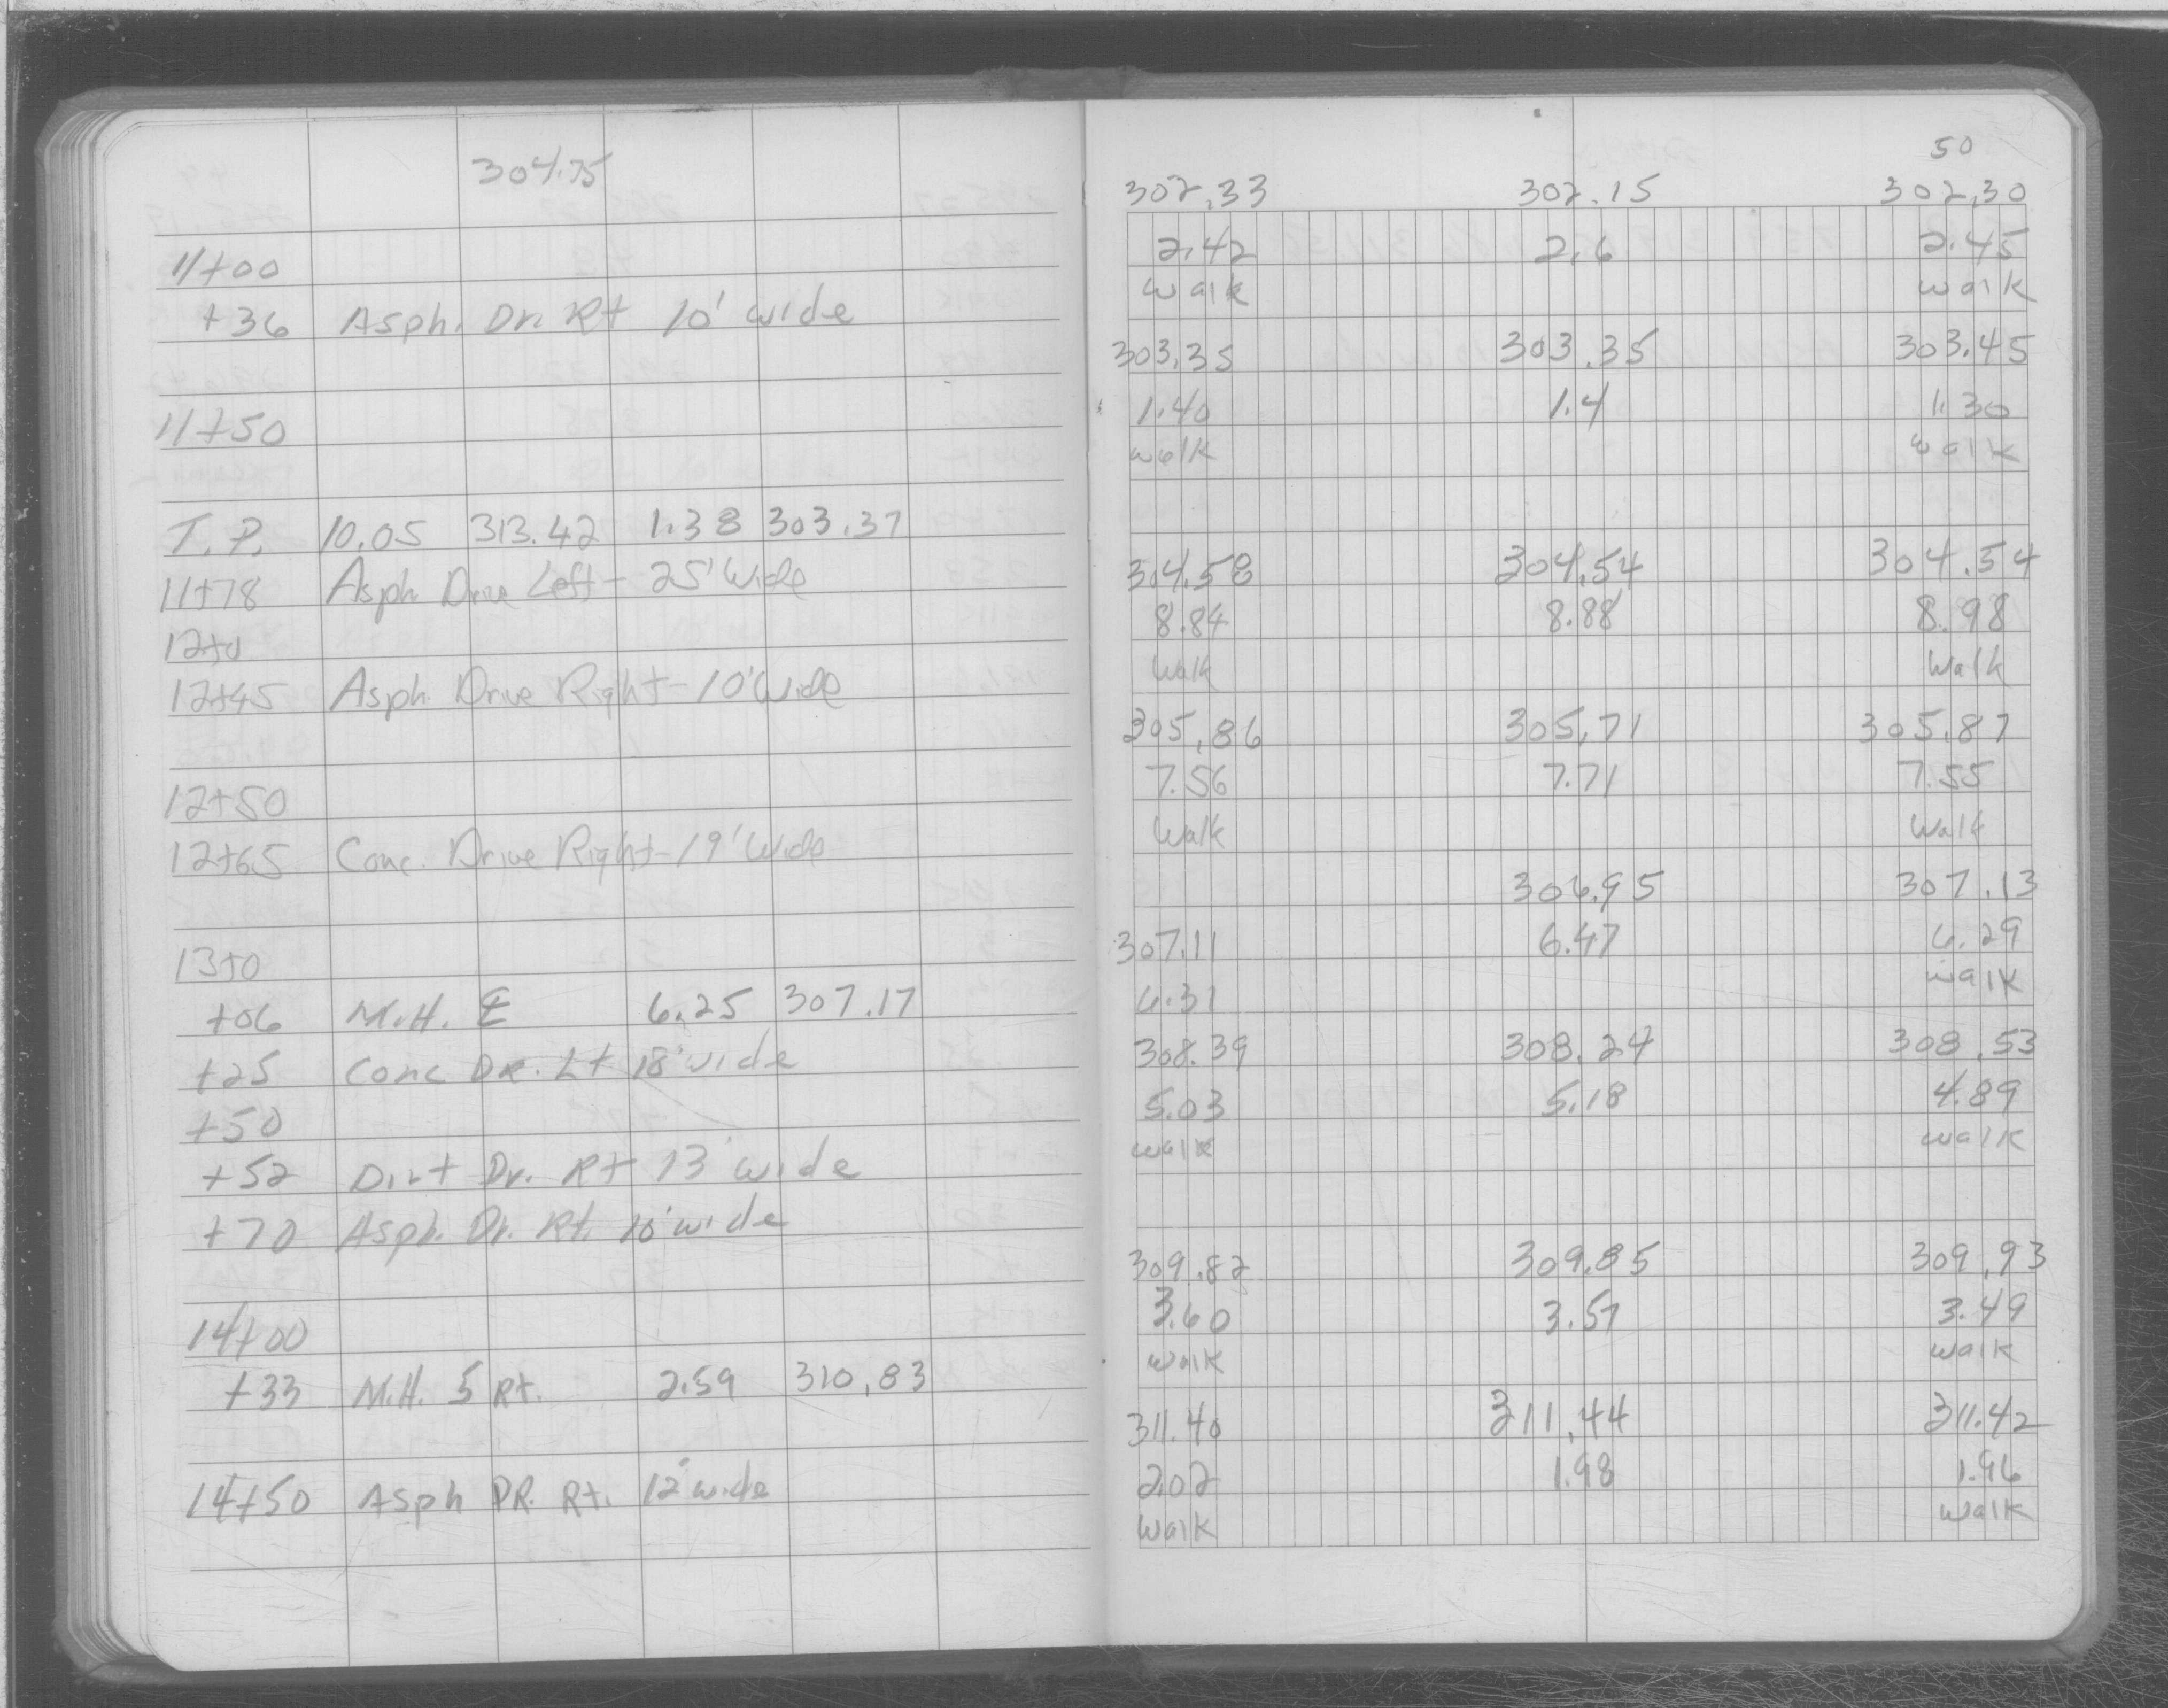 304.75
11+00
+36 Asph. Dr. Rt 10' wide
11+50
T.P. 10.05 313.42 1.38 303.37
11+78 Asph Drive Left - 25' Wide
12+0
12+45 Asph. Drive Right - 10' Wide
12+50
12+65 Conc. Drive Right - 19' Wide
13+0
+06 M.H. ℄ 6.25 307.17
+25 Conc DR. Lt 18' wide
+50
+52 Dirt Dr. Rt 13' wide
+70 Asph. Dr. Rt. 10' wide
14+00
+33 M.H. 5 Rt. 2.59 310.83
14+50 Asph DR. Rt. 12' wide
50
302.33 302.15 302.30
2.42 2.6 2.45
walk walk
303.35 303.35 303.45
1.40 1.4 1.30
walk walk
304.58 304.54 304.54
8.84 8.88 8.98
Walk Walk
305.86 305.71 305.87
7.56 7.71 7.55
Walk Walk
306.95 307.13
307.11 6.47 6.29
walk
6.31
308.39 308.24 308.53
5.03 5.18 4.89
walk walk
309.82 309.85 309.93
3.60 3.57 3.49
walk walk
311.40 311.44 311.42
2.02 1.98 1.96
walk walk